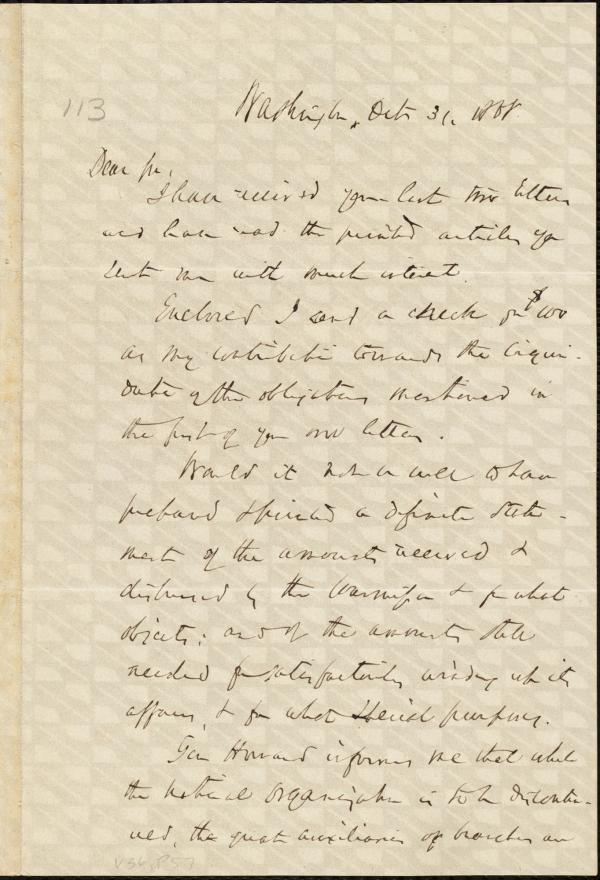 113
Washington, Oct. 31, 1868.
Dear Sir,
I have received your last two letters
and have read the printed articles you
sent me with much interest.
Enclosed I send a check for $200
as my contribution towards the liqui-
dation of the obligations mentioned in
the first of your two letters.
Would it not be well to have
prepared & printed a definite state-
ment of the amounts received &
disbursed by the Commission & for what
objects; and of the amounts still
needed for satisfactorily winding up its
affairs, & for what special purposes.
Gen Howard informs me that while
the National organization is to be discontin-
ued, the great auxiliaries or branches are
V.36, P.57